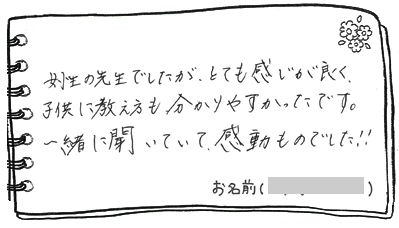 女性の先生でしたが、とても感じが良く、
子供に教え方も分かりやすかったです。
一緒に聞いていて、感動ものでした!!
お名前( )